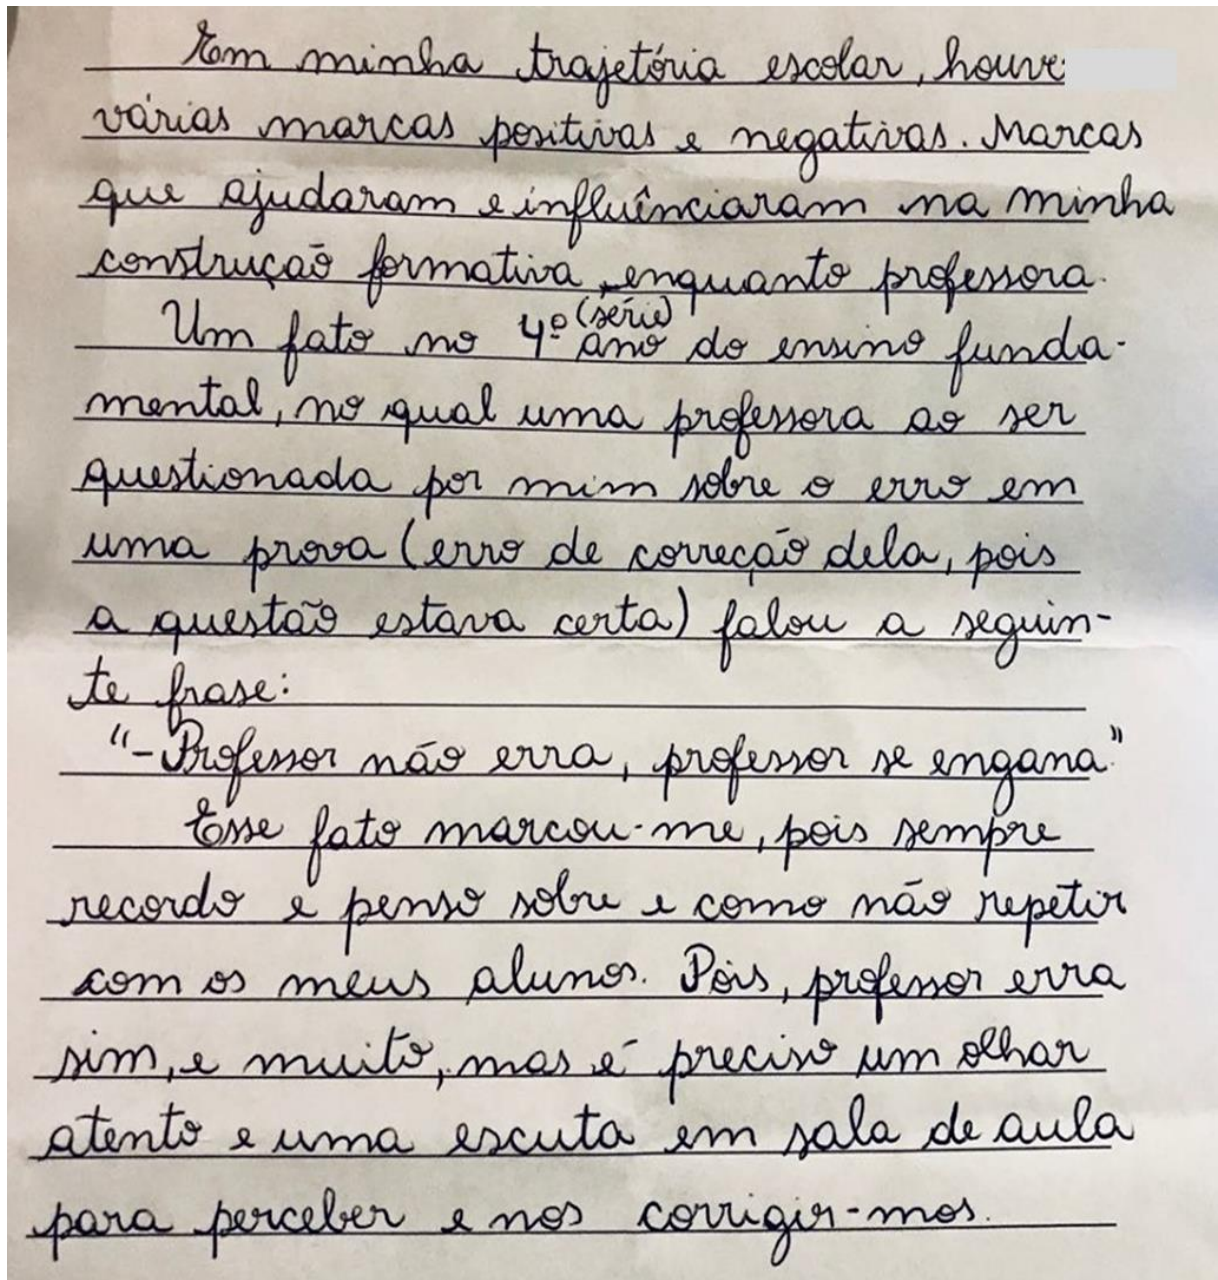 Em minha trajetória escolar, houve
várias marcas positivas e negativas. Marcas
que ajudaram e influênciaram na minha
construção formativa, enquanto professora.
(série)
Um fato no 4º ano do ensino funda-
mental, no qual uma professora ao ser
questionada por mim sobre o erro em
uma prova (erro de correção dela, pois
a questão estava certa) falou a seguin-
te frase:
"- Professor não erra, professor se engana."
Esse fato marcou-me, pois sempre
recordo e penso sobre e como não repetir
com os meus alunos. Pois, professor erra
sim, e muito, mas é preciso um olhar
atento e uma escuta em sala de aula
para perceber e nos corrigir-mos.